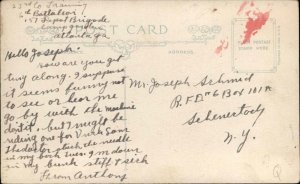 23rd Co Training
6th Battalion
157 Depot Brigade
Camp Gordon
Atlanta Ga
POST CARD
ADDRESS
Hello Joseph.
How are you get
ting along. I suppose
it seems funny not
to see or hear me
go by with the machine
don't it, but I might be
riding one for Uncle Sam
The doctor stuck the needle
in my back
in my bunk stiff & sick
From Anthony
Mr Joseph Schmid
R.F.D #6 Box 101A
Schenectady
N.Y.